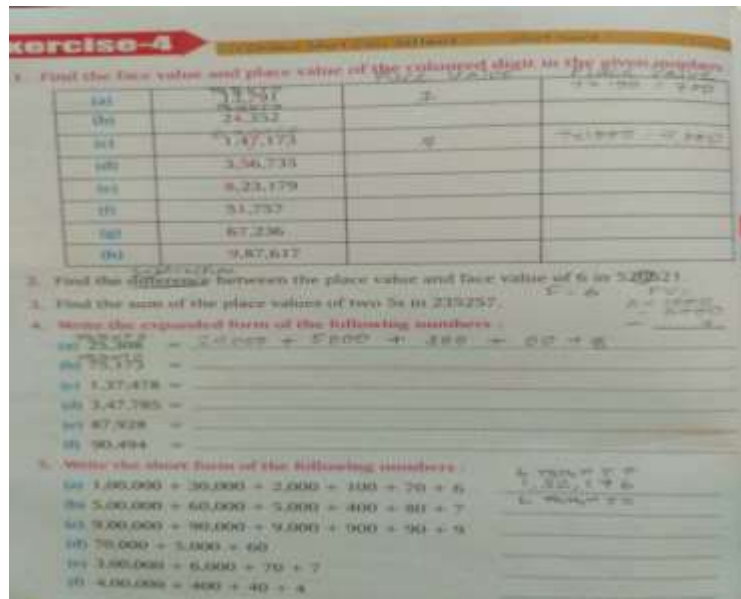 xercise-4
1. Find the face value and place value of the coloured digit in the given numbers
Face Value Place Value
(a)
(b) 24,352
(c) 1,47,173
(d) 3,56,735
(e) 8,23,179
(f) 51,757
(g) 67,236
(h) 9,87,617
2. Find the difference between the place value and face value of 6 in
3. Find the sum of the place values of two 5s in 235257.
4. Write the expanded form of the following numbers :
(a) 25,308 = 20000 + 5000 + 300 + 00 + 8
(b) 75,175 =
(c) 1,37,478 =
(d) 3,47,785 =
(e) 87,928 =
(f) 90,494 =
5. Write the short form of the following numbers :
(a) 1,00,000 + 30,000 + 2,000 + 100 + 70 + 6 1,32,176
(b) 5,00,000 + 60,000 + 5,000 + 400 + 80 + 7
(c) 9,00,000 + 90,000 + 9,000 + 900 + 90 + 9
(d) 70,000 + 5,000 + 60
(e) 3,00,000 + 6,000 + 70 + 7
(f) 4,00,000 + 400 + 40 + 4